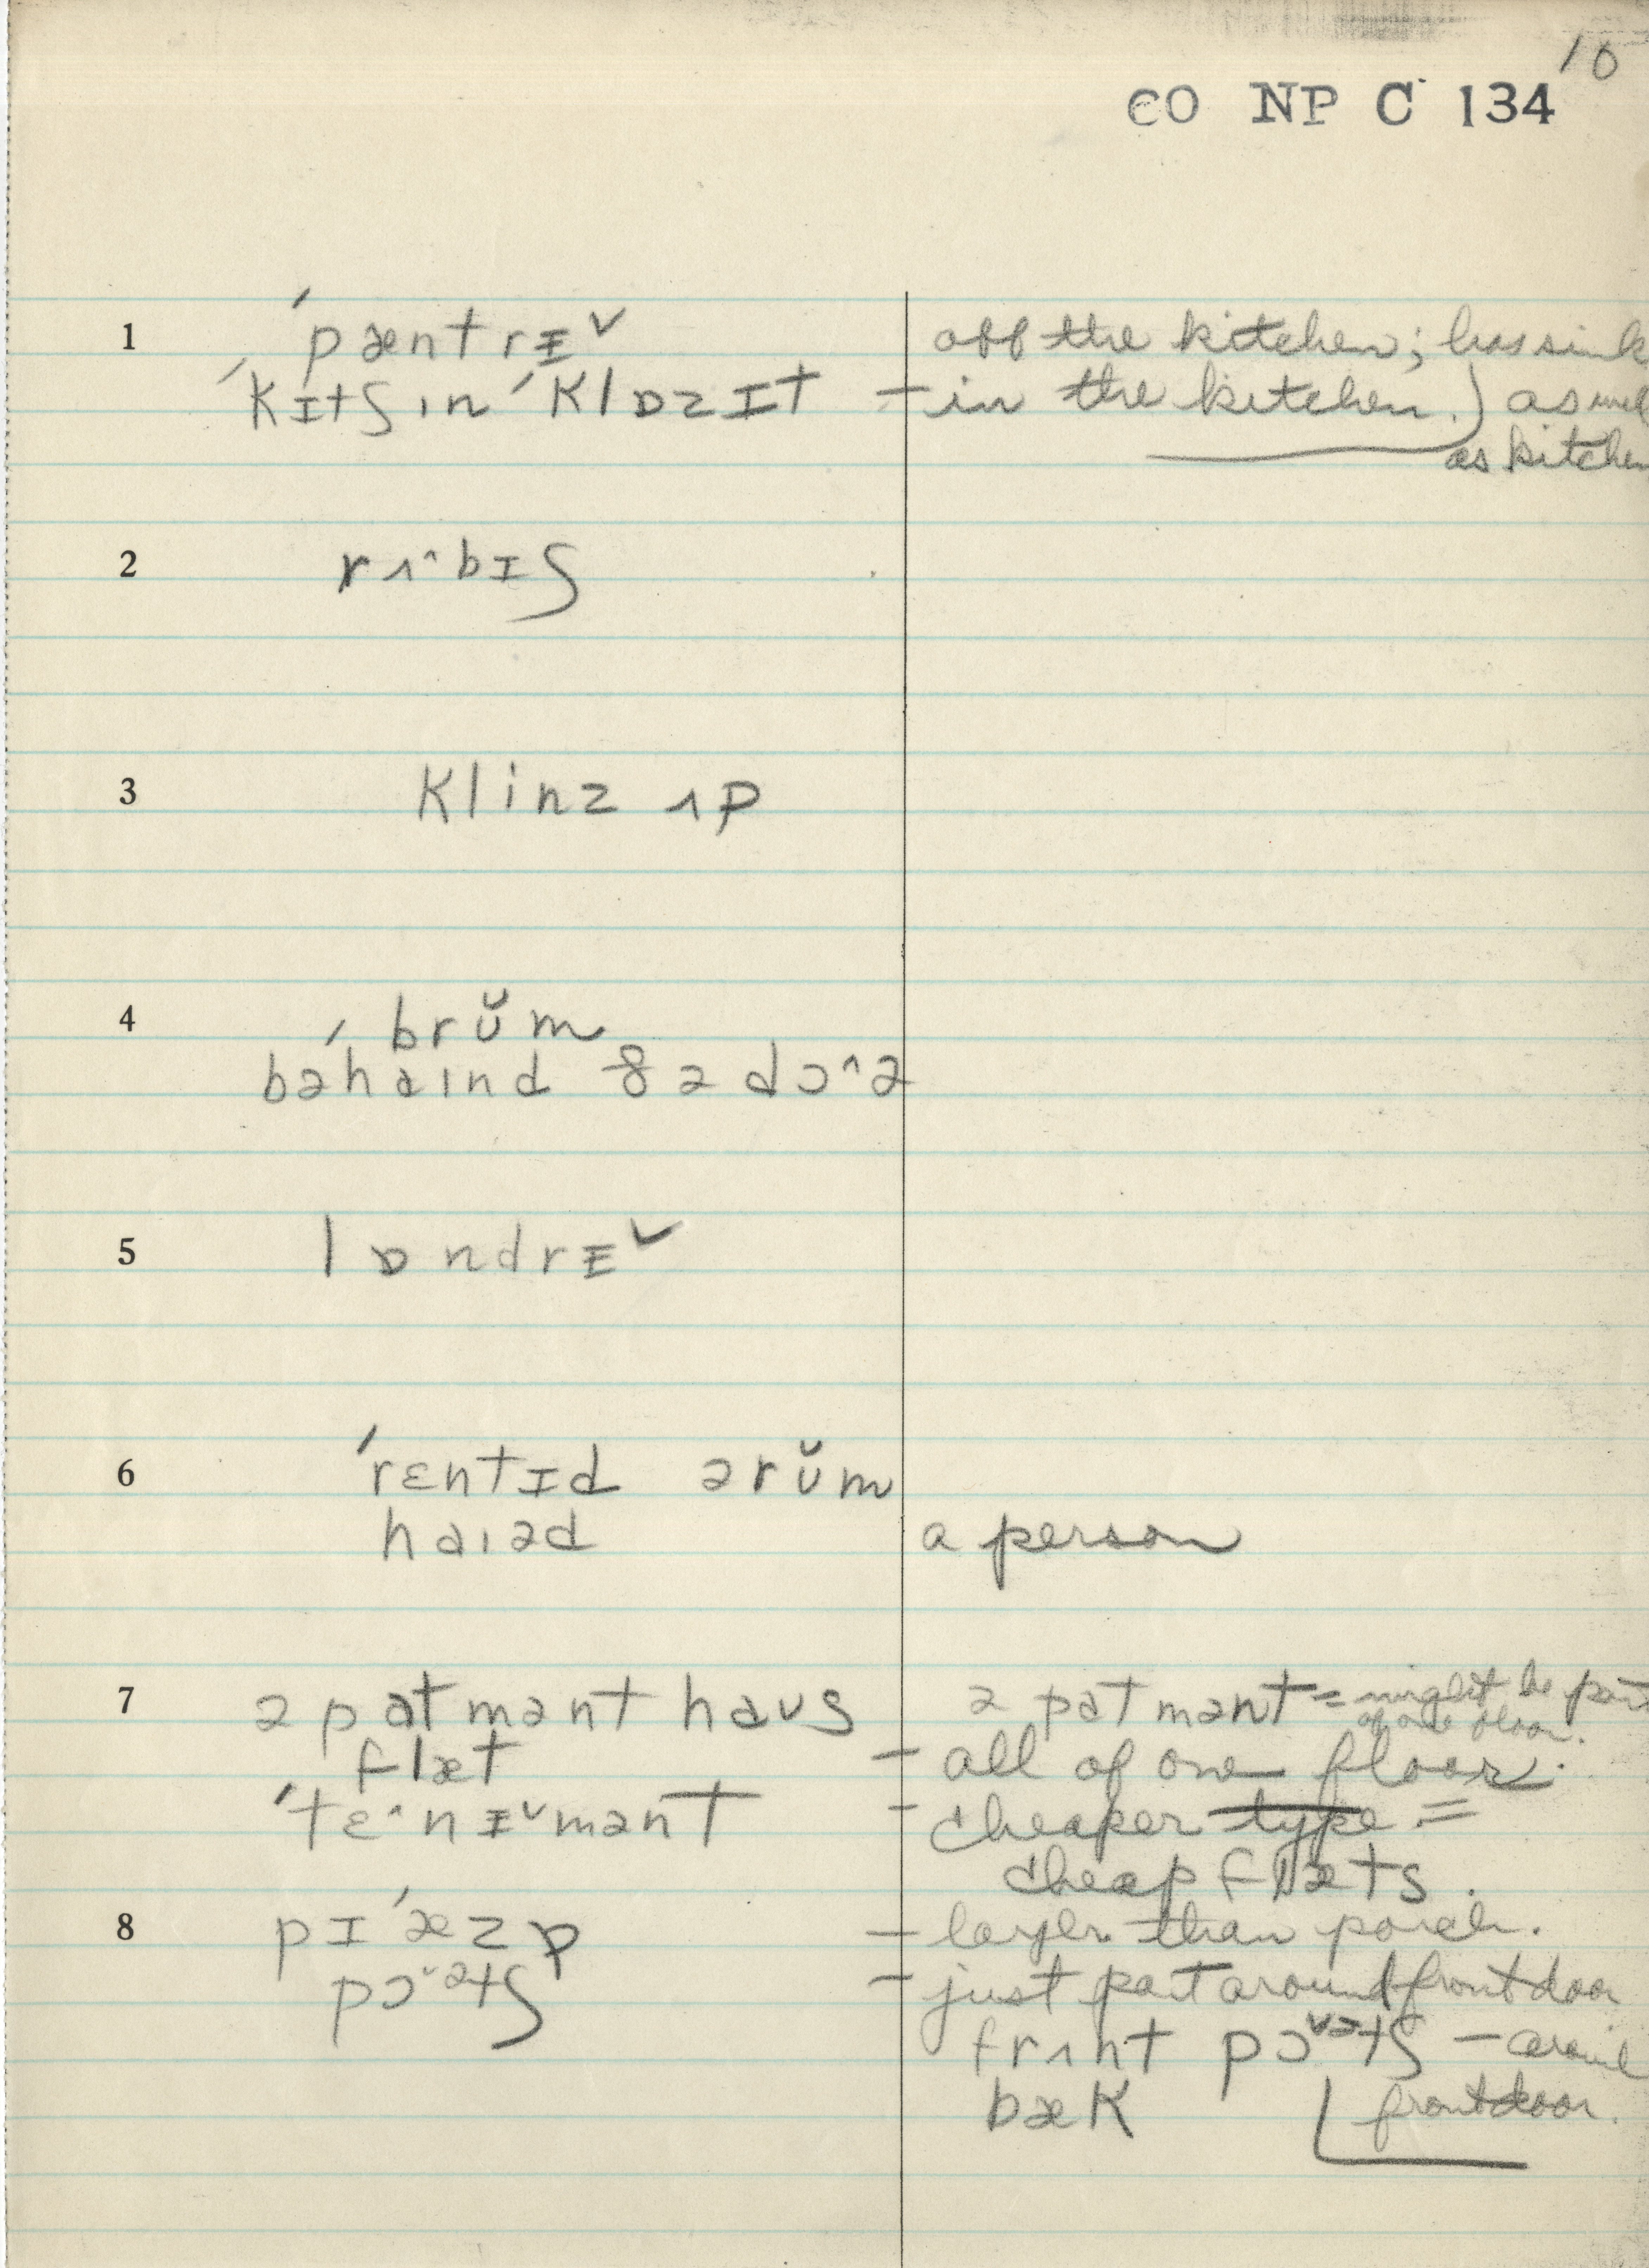 10
CO NP C 134
1 ˈpæntrᵻ˅ off the kitchen; has sink
ˈkɪtʃɪn ˈklɒzɪt – in the kitchen.) as well
as kitchen
2 rʌ^bɪʃ
3 klinz ʌp
4 ˈbrŭm
bəhaɪnd ðə dɔ^ə
5 lɒndrᵻ˅
6 ˈrɛntɪd ə rŭm
haɪəd a person
7 əpatmənt haʊs əpatmənt = might be part
of one floor.
flæt – all of one floor.
ˈtɛ^nᵻ˅mənt – cheaper type =
cheap flæts.
8 pɪˈæzə – larger than porch.
pɔ˅ətʃ – just part around front door
frʌnt pɔ˅ətʃ – around
bæk front door.